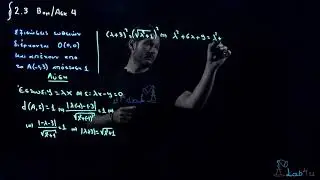 § 2.3 Βομ/Ασκ 4
εξισώσεις ευθειών
διέρχονται O(0,0)
και απέχουν από
το A(-1,3) απόσταση 1
Λύση
Έστω ε: y = λx ⇔ ε: λx-y=0
d(A,ε)=1 ⇔ |λ(-1)-1·3| / √(λ²+(-1)²) = 1 ⇔
⇔ |-λ-3| / √(λ²+1) = 1 ⇔ |λ+3| = √(λ²+1)
(λ+3)² = (√(λ²+1))² ⇔ λ²+6λ+9 = λ²+
Lab4u